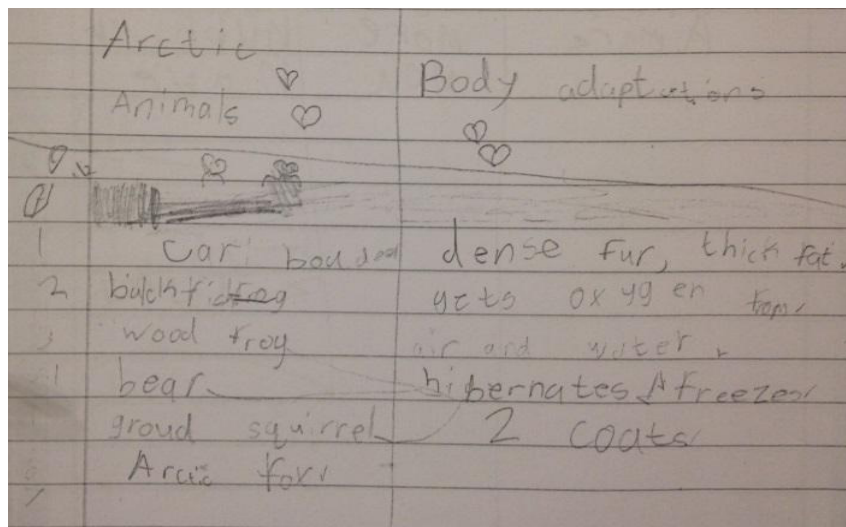 Arctic
Animals
Body adaptations
1 Cari bou dense fur, thick fat.
2 gets oxygen from
wood frog air and water.
bear hibernates freezes
groud squirrel 2 coats
Arctic